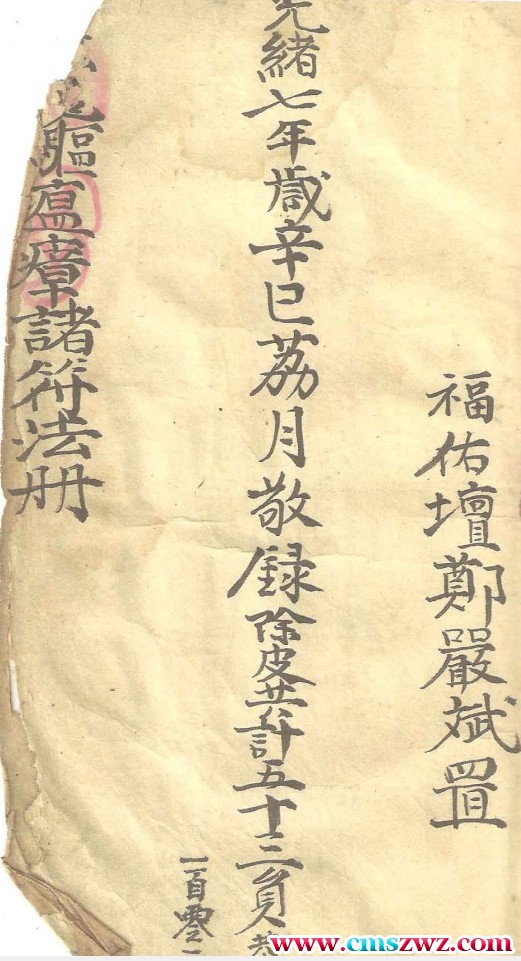 福佑壇鄭嚴斌置
光緒七年歲辛巳荔月敬錄除皮共計五十三頁
一百零一
驅瘟瘴諸符法冊
www.cmszwz.com